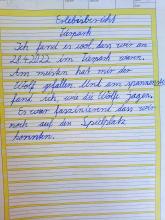 Erlebnisbericht
Tierpark
Ich fand es cool, dass wir am
28.4.2022 im Tierpark waren.
Am meisten hat mir der
Wolf gefallen. Und am spannensten
fand ich wie die Wölfe jagen.
Es war faszinierend das wir
noch auf den Spielplatz
konnten.